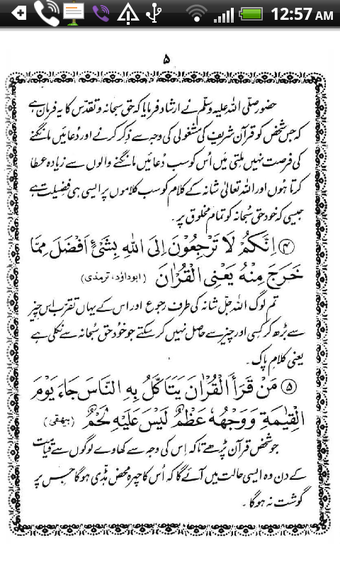 12:57 AM
۵
حضور صلی اللہ علیہ وسلم نے ارشاد فرمایا کہ حق سبحانہ و تقدس کا یہ فرمان ہے
کہ جس شخص کو قرآن شریف کی مشغولی کی وجہ سے ذکر کرنے اور دعائیں مانگنے
کی فرصت نہیں ملتی میں اُس کو سب دعائیں مانگنے والوں سے زیادہ عطا
کرتا ہوں اور اللہ تعالیٰ شانہ کے کلام کو سب کلاموں پر ایسی ہی فضیلت ہے
جیسی کہ خود حق سبحانہ کو تمام مخلوق پر۔
(۴) اِنَّكُمْ لَا تَرْجِعُوْنَ اِلَی اللهِ بِشَیْءٍ اَفْضَلَ مِمَّا
خَرَجَ مِنْهُ یَعْنِی الْقُرْاٰنَ (ابوداؤد، ترمذی)
تم لوگ اللہ جل شانہ کی طرف رجوع اور اس کے یہاں تقرب اس چیز
سے بڑھ کر کسی اور چیز سے حاصل نہیں کر سکتے جو خود حق سبحانہ سے نکلی ہے
یعنی کلام پاک۔
(۵) مَنْ قَرَأَ الْقُرْاٰنَ یَتَاَكَّلُ بِهِ النَّاسَ جَاءَ یَوْمَ
الْقِیٰمَةِ وَوَجْهُهٗ عَظْمٌ لَیْسَ عَلَیْهِ لَحْمٌ (بیہقی)
جو شخص قرآن پڑھے تاکہ اس کی وجہ سے کھاوے لوگوں سے قیامت
کے دن وہ ایسی حالت میں آئے گا کہ اُس کا چہرہ محض ہڈی ہوگا جس پر
گوشت نہ ہوگا۔